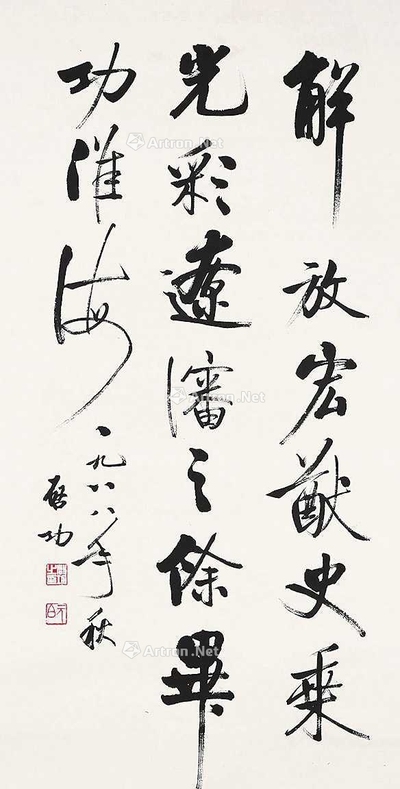 解放宏猷史乘
光彩遼瀋之餘畢
功淮海
一九八八年秋
啓功
Artron.Net
Artron.Net
Artron.Net
Artron.Net